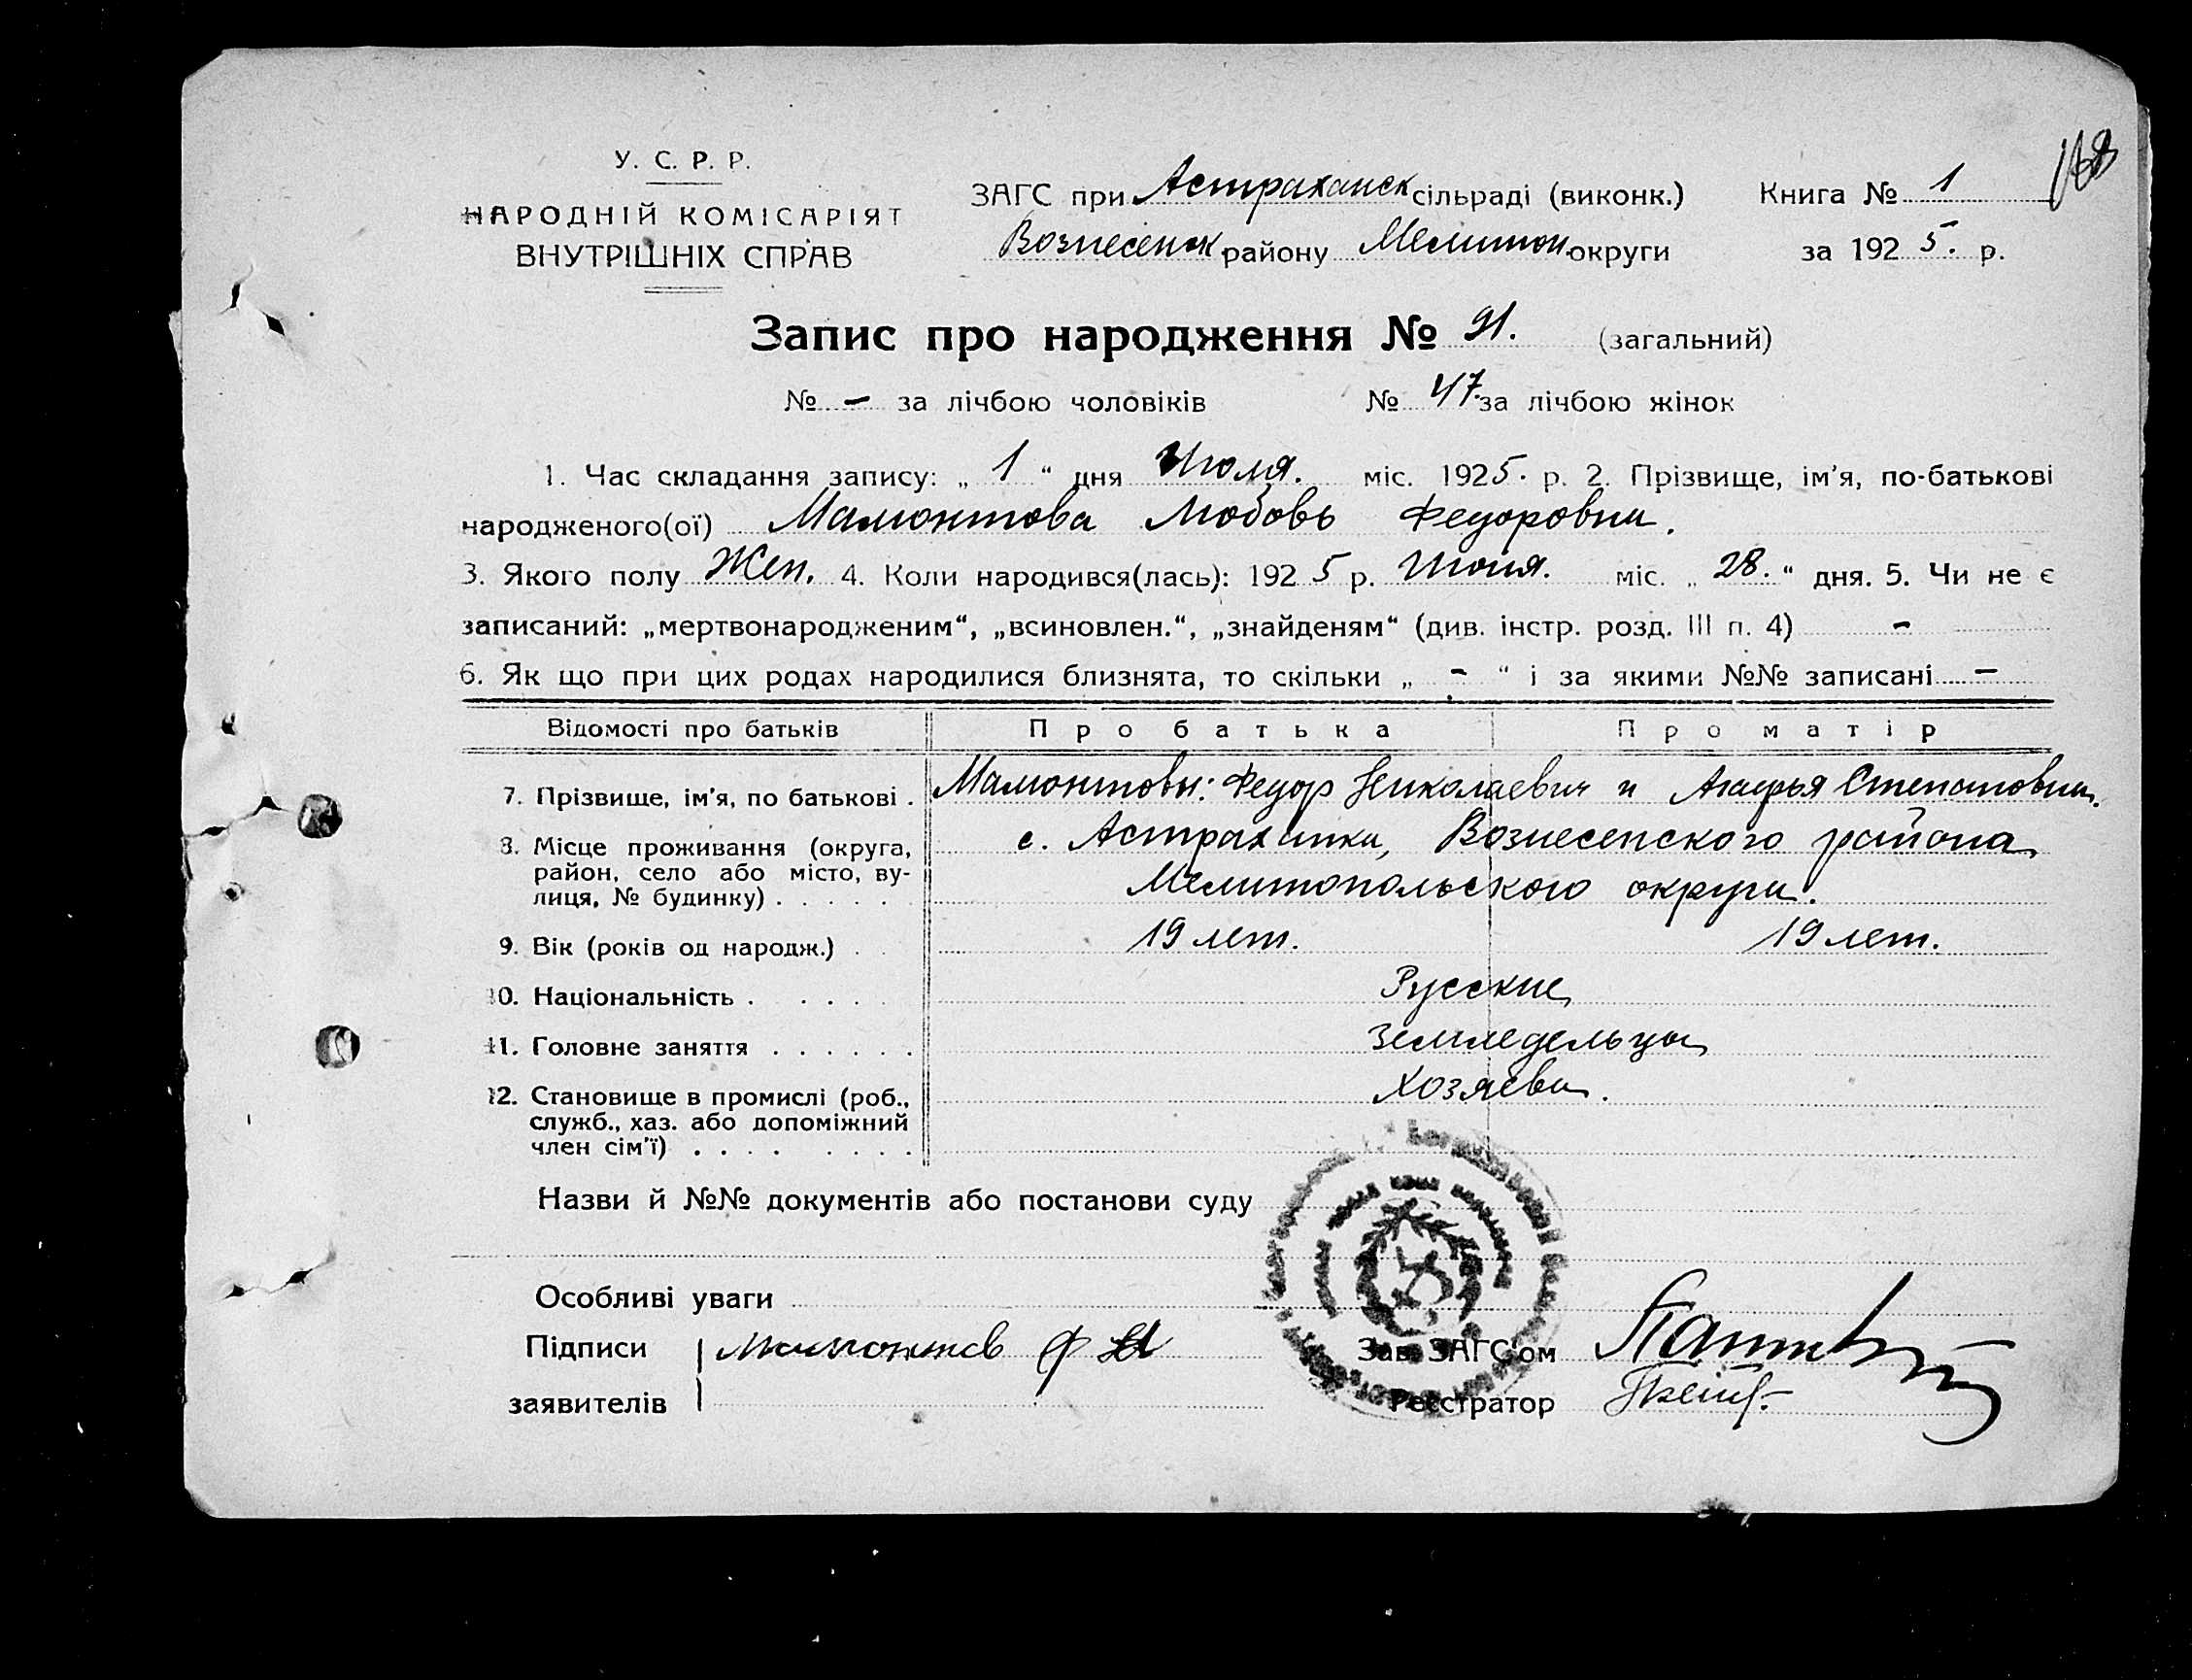 168
У. С. Р. Р.
НАРОДНІЙ КОМІСАРІЯТ
ВНУТРІШНІХ СПРАВ
ЗАГС при Астраханск сільраді (виконк.) Книга № 1
Вознесенск району Мелитоп округи за 1925. р.
Запис про народження № 91. (загальний)
№ - за лічбою чоловіків № 47. за лічбою жінок
1. Час складання запису: „ 1 “ дня Июля. міс. 1925. р. 2. Прізвище, ім'я, по-батькові
народженого(ої) Мамонтова Любовь Федоровна.
3. Якого полу Жен. 4. Коли народився(лась): 1925 р. Июня. міс. „ 28. “ дня. 5. Чи не є
записаний: „мертвонародженим“, „всиновлен.“, „знайденям“ (див. інстр. розд. III п. 4) -
6. Як що при цих родах народилися близнята, то скільки „ - “ і за якими №№ записані -
Відомості про батьків Про батька Про матір
7. Прізвище, ім'я, по батькові . Мамонтовы: Федор Николаевич и Агафья Степановна.
8. Місце проживання (округа, с. Астраханка, Вознесенского района
район, село або місто, ву-
лиця, № будинку) . . . . . Мелитопольского округа.
9. Вік (років од народж.) . . 19 лет. 19 лет.
10. Національність . . . . . Русские
11. Головне заняття . . . . . . Земледельцы
12. Становище в промислі (роб., Хозяева.
служб., хаз. або допоміжний
член сім'ї) . . . . . . . .
Назви й №№ документів або постанови суду
Особливі уваги
Підписи Мамонтов Ф Н Зав. ЗАГС'ом
заявителів Реєстратор